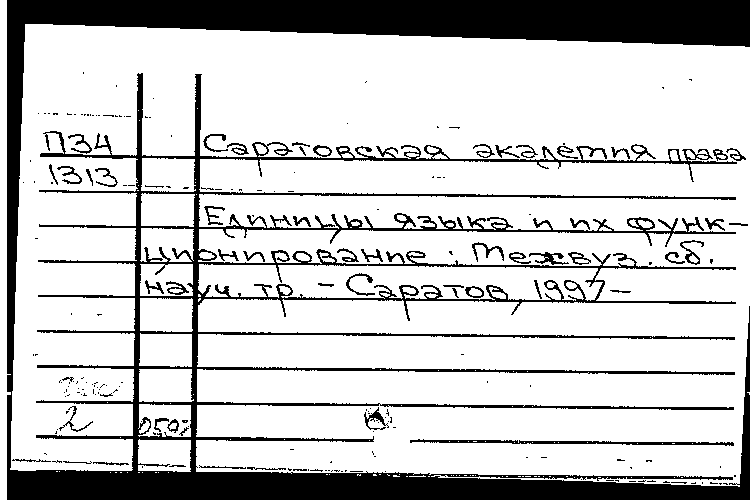 П34 Саратовская академия права
1313
Единицы языка и их функ-
ционирование : Межвуз. сб.
науч. тр. - Саратов, 1997-
2